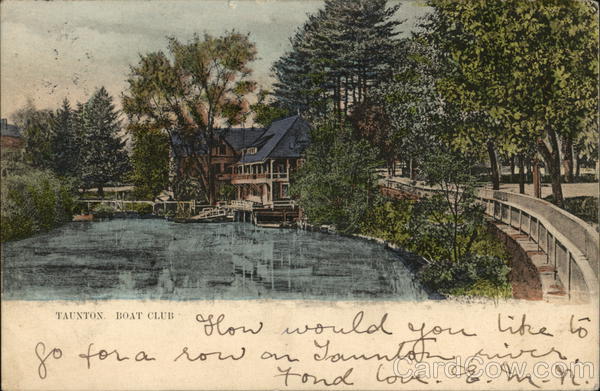 TAUNTON. BOAT CLUB
How would you like to
go for a row on Taunton river.
Fond love. E. M. R.
CardCow.com